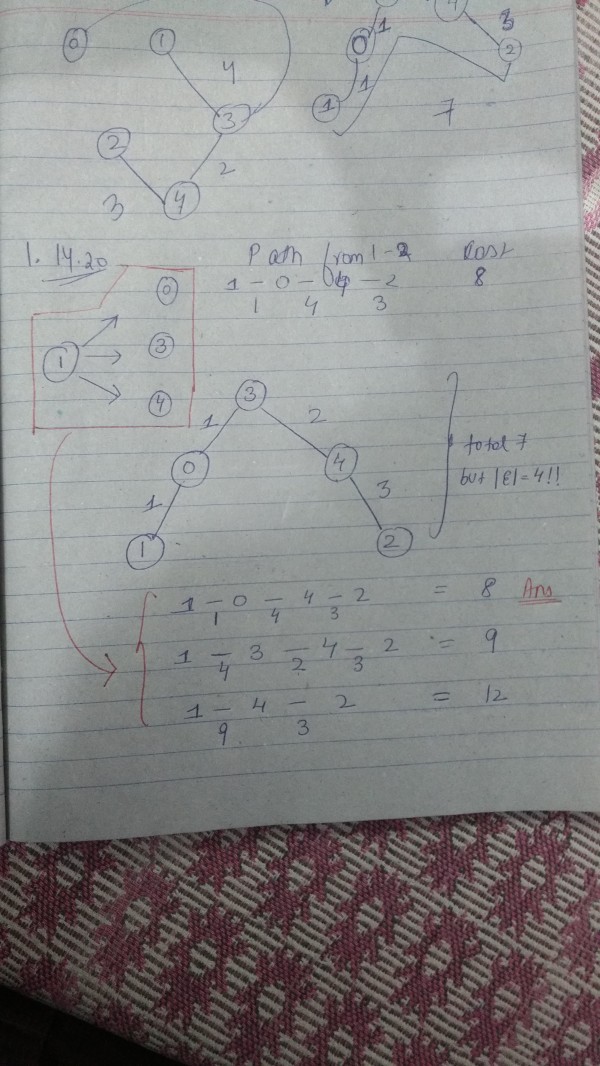 0 1 4 3
2 3 4 2
0 1 1 1 4 3 2 7
1. 14.20 Path from 1-2 Cost
1 - 0 - 4 - 2 8
1 4 3
1 0 3 4
3 1 2
0 4 total 7
1 3 but |E|=4!!
1 2
1 - 0 - 4 - 2 = 8 Ans
1 4 3
1 - 3 - 4 - 2 = 9
4 2 3
1 - 4 - 2 = 12
9 3